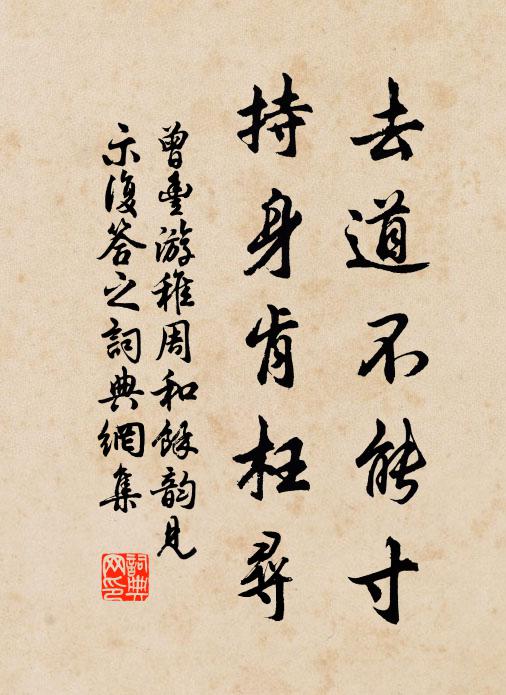 去道不能寸
持身肯枉尋
曾豐游稚周和餘韵見
示復答之詞典網集
詞典網印